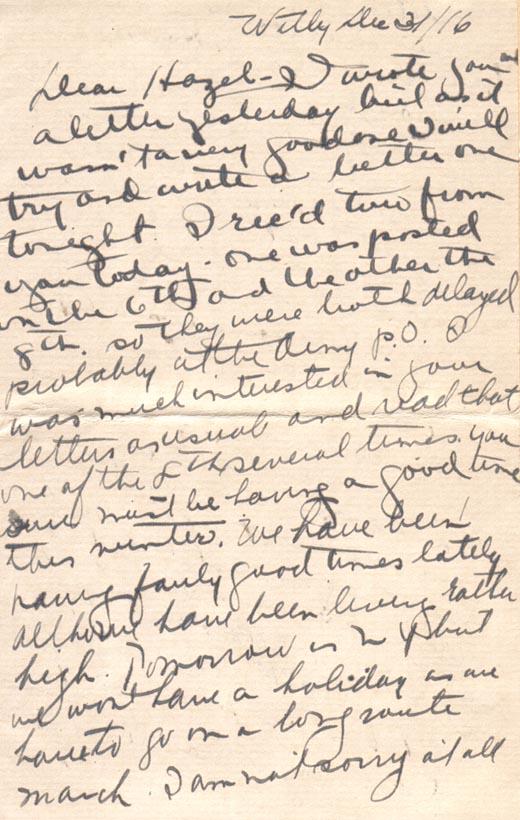 Witly Dec 31/16
Dear Hazel - I wrote you
a letter yesterday but as it
wasn't a very good one I will
try and write a better one
tonight. I rec'd two from
you today. one was posted
on the 6th and the other the
8th. so they were both delayed
probably at the Army P.O. I
was much interested in your
letters as usual and read that
one of the 8th several times. you
sure must be having a good time
this winter. We have been
having fairly good times lately
altho we have been living rather
high. Tomorrow is but
we won't have a holiday as we
have to go on a long route
march. I am not sorry at all